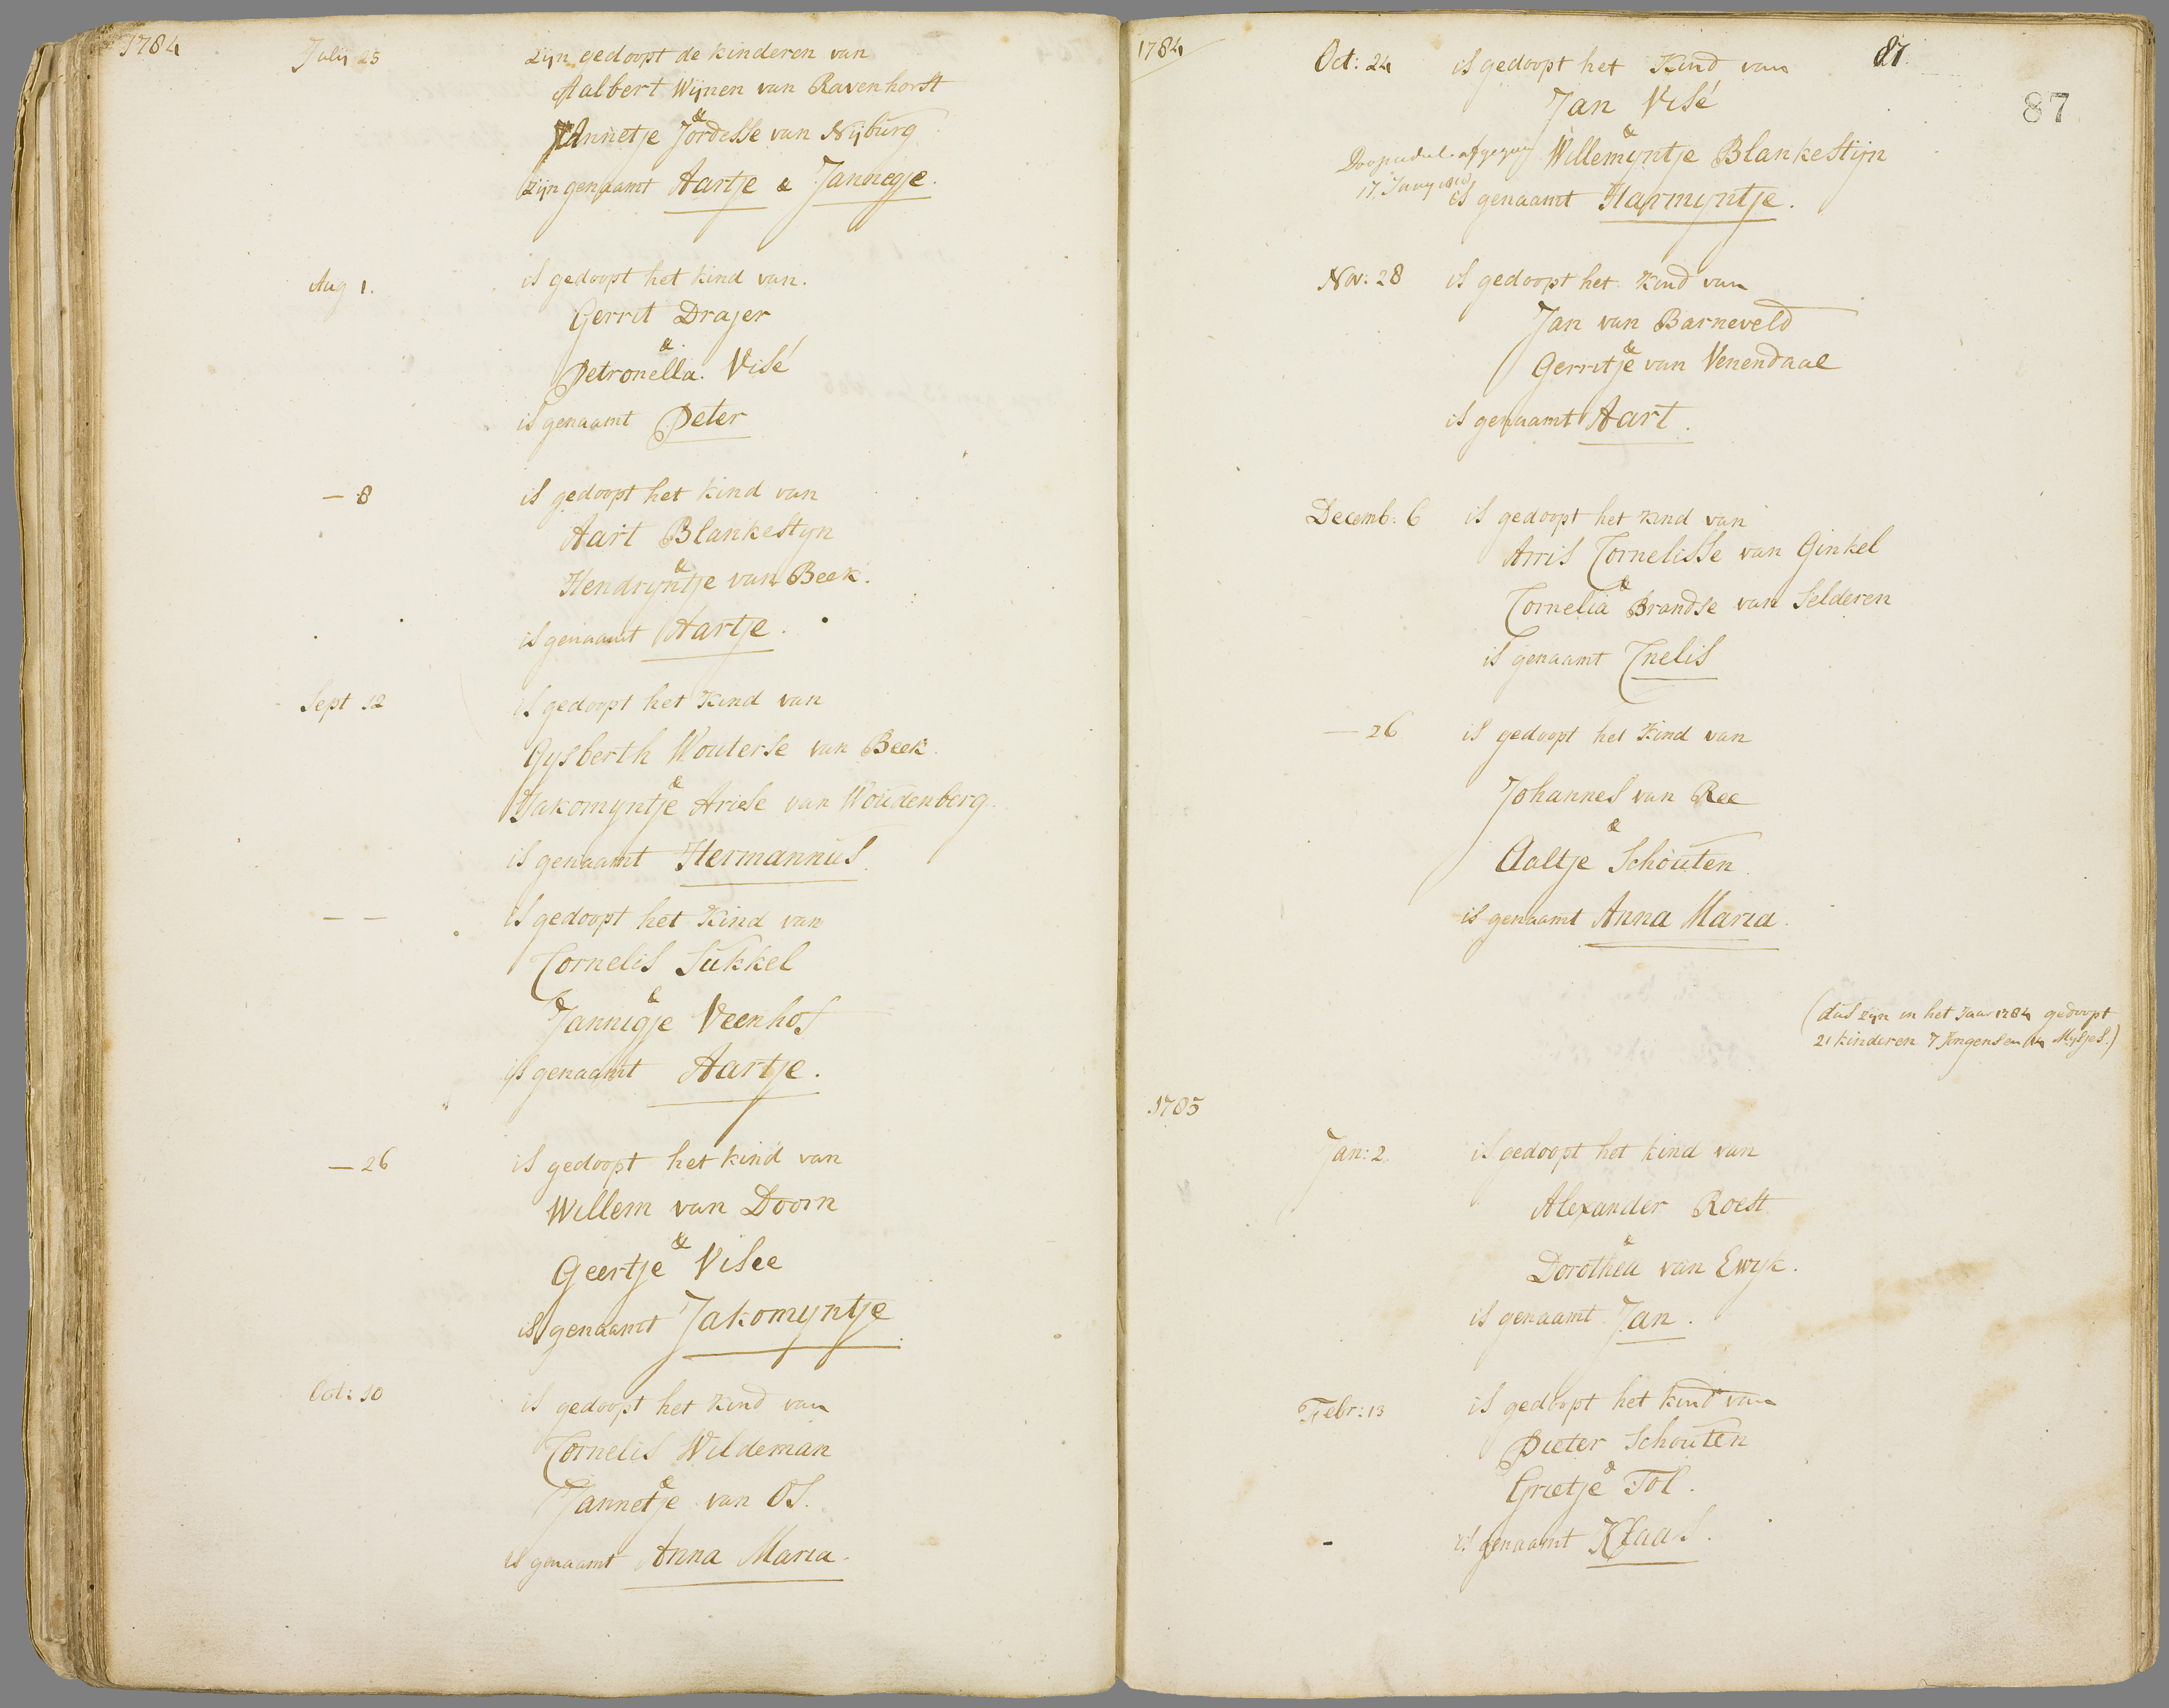 1784
July 25 zijn gedoopt de kinderen van
Aalbert Wijnen van Ravenhorst
&
Annetje Jordesse van Nijburg
zijn genaamt Aartje & Jannegje.
Aug 1. is gedoopt het kind van.
Gerrit Drajer
&
Petronella. Visé
is genaamt Peter
— 8 is gedoopt het kind van
Aart Blankestyn
&
Hendryntje van Beek.
is genaamt Aartje.
Sept 12 is gedoopt het Kind van
Gysberth Wouterse van Beek.
&
Jakomyntje Ariese van Woudenberg.
is genaamt Hermannus
— — is gedoopt het Kind van
Cornelis Sukkel
&
Jannigje Veenhof
is genaamt Aartje.
— 26 is gedoopt het kind van
Willem van Doorn
&
Geertje Visee
is genaamt Jakomyntje
Oct: 10 is gedoopt het Kind van
Cornelis Wildeman
&
Jannetje van Os.
is genaamt Anna Maria.
1784
Oct: 24 is gedoopt het Kind van 87.
87
Jan Visé
&
Willemyntje Blankestijn
17
is genaamt Harmyntje.
Nov: 28 is gedoopt het Kind van
Jan van Barneveld
&
Gerritje van Venendaal
is genaamt Aart.
Decemb: 6 is gedoopt het kind van
Arris Cornelisse van Ginkel
&
Cornelia Brandse van Selderen
is genaamt Cnelis
— 26 is gedoopt het Kind van
Johannes van Ree
&
Aaltje Schouten
is genaamt Anna Maria.
(dus zijn in het Jaar 1784 gedoopt
21 kinderen 7 Jongens en 14 Mysjes.)
1785
Jan: 2. is gedoopt het kind van
Alexander Roest
&
Dorothea van Ewyk.
is genaamt Jan.
Febr: 13 is gedoopt het kind van
Pieter Schouten
&
Grietje Tol.
- is genaamt Klaas.